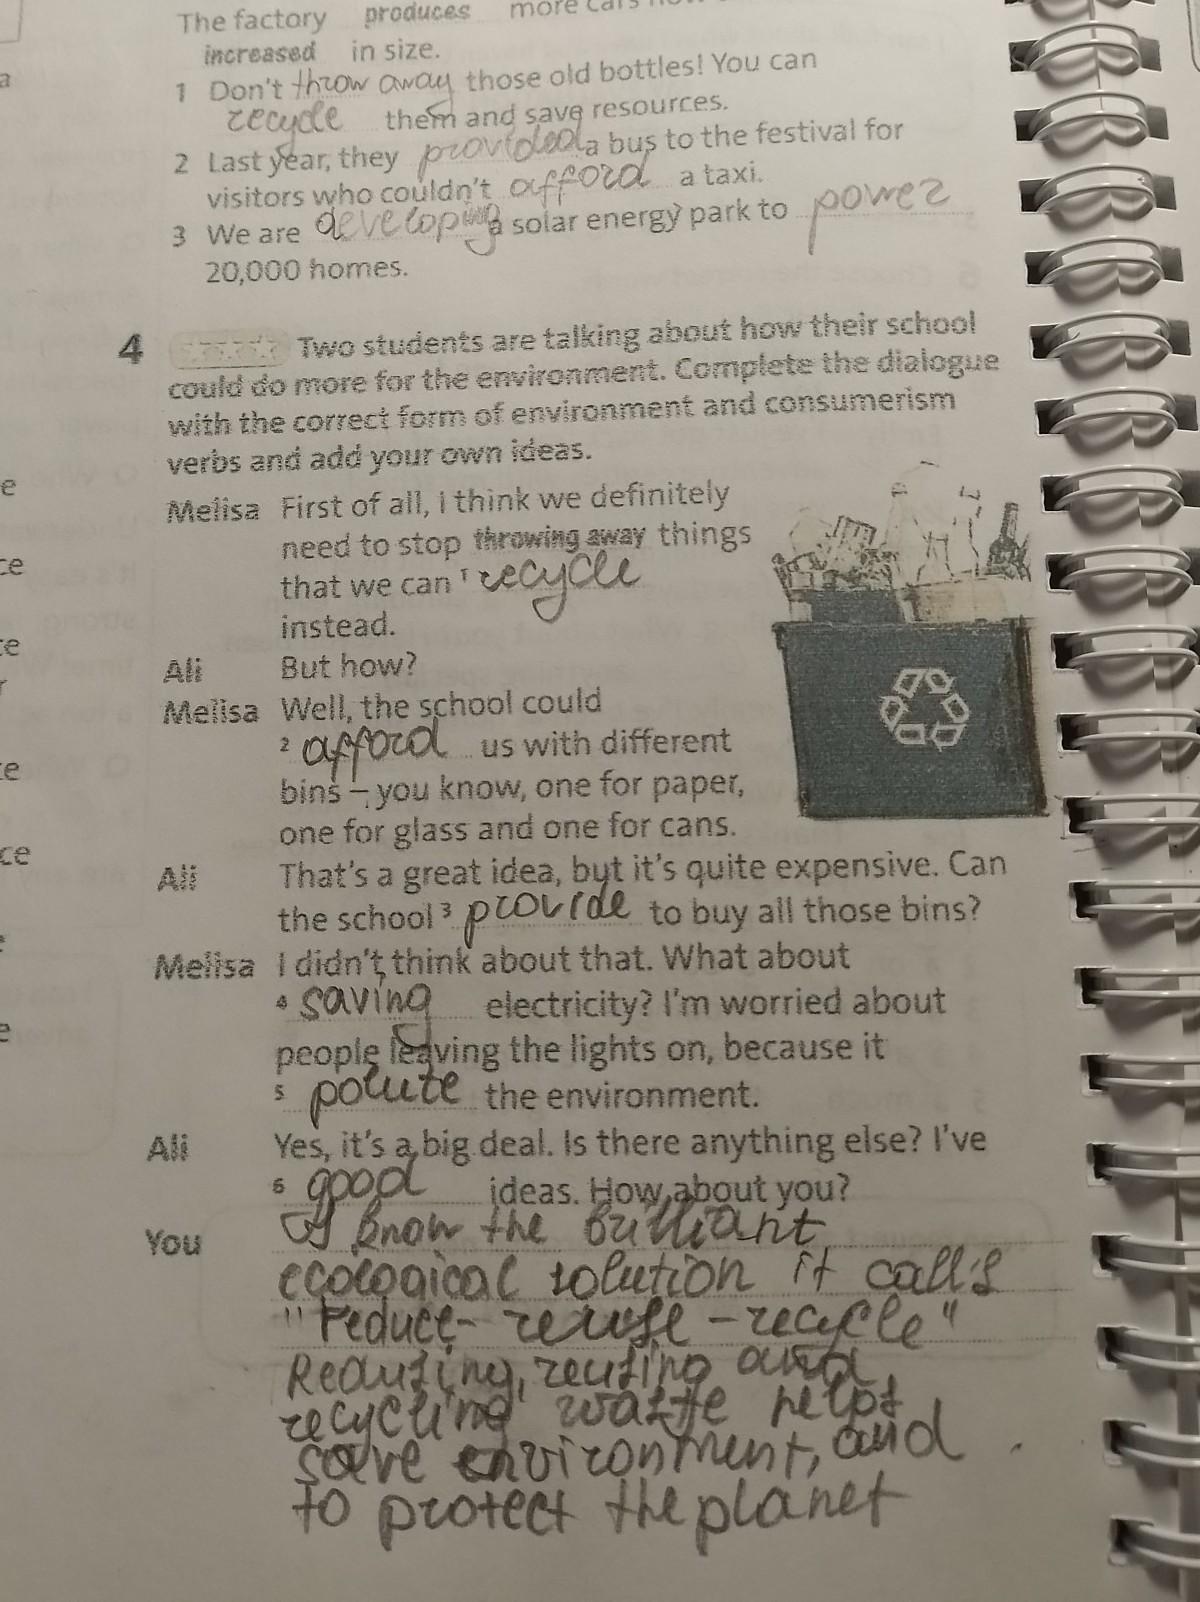 The factory produces more cars now
increased in size.
1 Don't throw away those old bottles! You can
recycle them and save resources.
2 Last year, they provided a bus to the festival for
visitors who couldn't afford a taxi.
3 We are developing a solar energy park to power
20,000 homes.
4 Two students are talking about how their school
could do more for the environment. Complete the dialogue
with the correct form of environment and consumerism
verbs and add your own ideas.
Melisa First of all, I think we definitely
need to stop throwing away things
that we can 1 recycle
instead.
Ali But how?
Melisa Well, the school could
2 afford us with different
bins – you know, one for paper,
one for glass and one for cans.
Ali That's a great idea, but it's quite expensive. Can
the school 3 provide to buy all those bins?
Melisa I didn't think about that. What about
4 saving electricity? I'm worried about
people leaving the lights on, because it
5 polute the environment.
Ali Yes, it's a big deal. Is there anything else? I've
6 good ideas. How about you?
You I know the brilliant
ecological solution it call's
"reduce - reuse - recycle"
Reducing, reusing and
recycling waste helps
save environment, and
to protect the planet